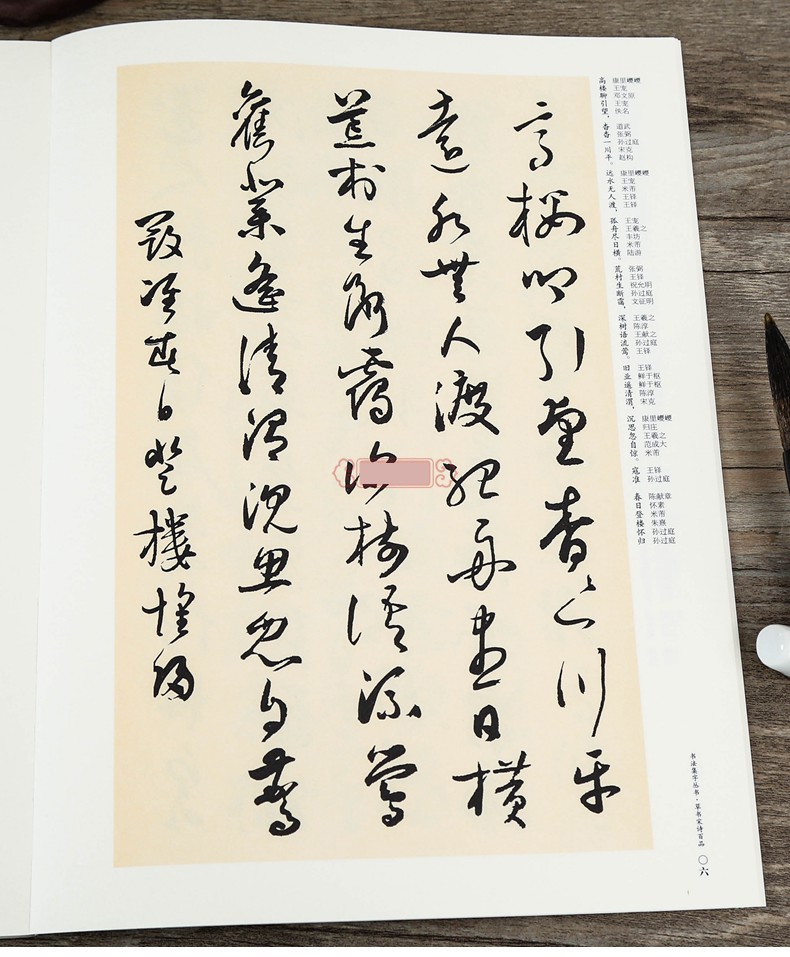 高樓聊引望杳〻一川平
遠水無人渡孤舟盡日横
荒村生断靄深樹語流鶯
舊業遥清渭沉思忽自驚
寇準春日登樓懷歸
康里巎巎
王宠
邓文原
王宠
佚名
张弼
孙过庭
宋克
赵构
康里巎巎
王宠
米芾
王铎
王铎
王宠
王羲之
丰坊
米芾
陆游
张弼
王铎
祝允明
孙过庭
文征明
王羲之
陈淳
王献之
孙过庭
王铎
王铎
鲜于枢
鲜于枢
陈淳
宋克
康里巎巎
归庄
王羲之
范成大
米芾
王铎
孙过庭
陈献章
怀素
米芾
朱熹
孙过庭
孙过庭
高楼聊引望，杳杳一川平。远水无人渡，孤舟尽日横。荒村生断霭，深树语流莺。旧业遥清渭，沉思忽自惊。寇准 春日登楼怀归
书法集字丛书·草书宋诗百品 〇六